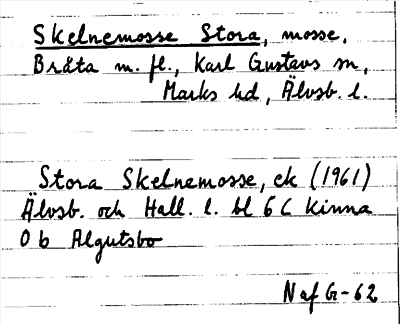 Skelnemosse Stora, mosse,
Bråta m. fl., Karl Gustavs sn,
Marks hd, Älvsb. l.
Stora Skelnemosse, ek (1961)
Älvsb. och Hall. l. bl 6 C Kinna
O b Algutsbo
N af G-62